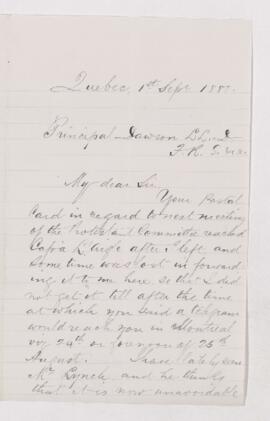 Quebec, 1st Sept 1880.
Principal Dawson LL.D
F.R.S
My dear Sir
Your Postal
Card in regard to next meeting
of the Protestant Committee reached
after I left and
some time was lost in forward
ing it to me here so that I did
not get it till after the time
at which you said a telegram
would reach you in Montreal
viz 24th or forenoon of 25th
August. I have lately seen
Mr Lynch and he thinks
that it is now unavoidable